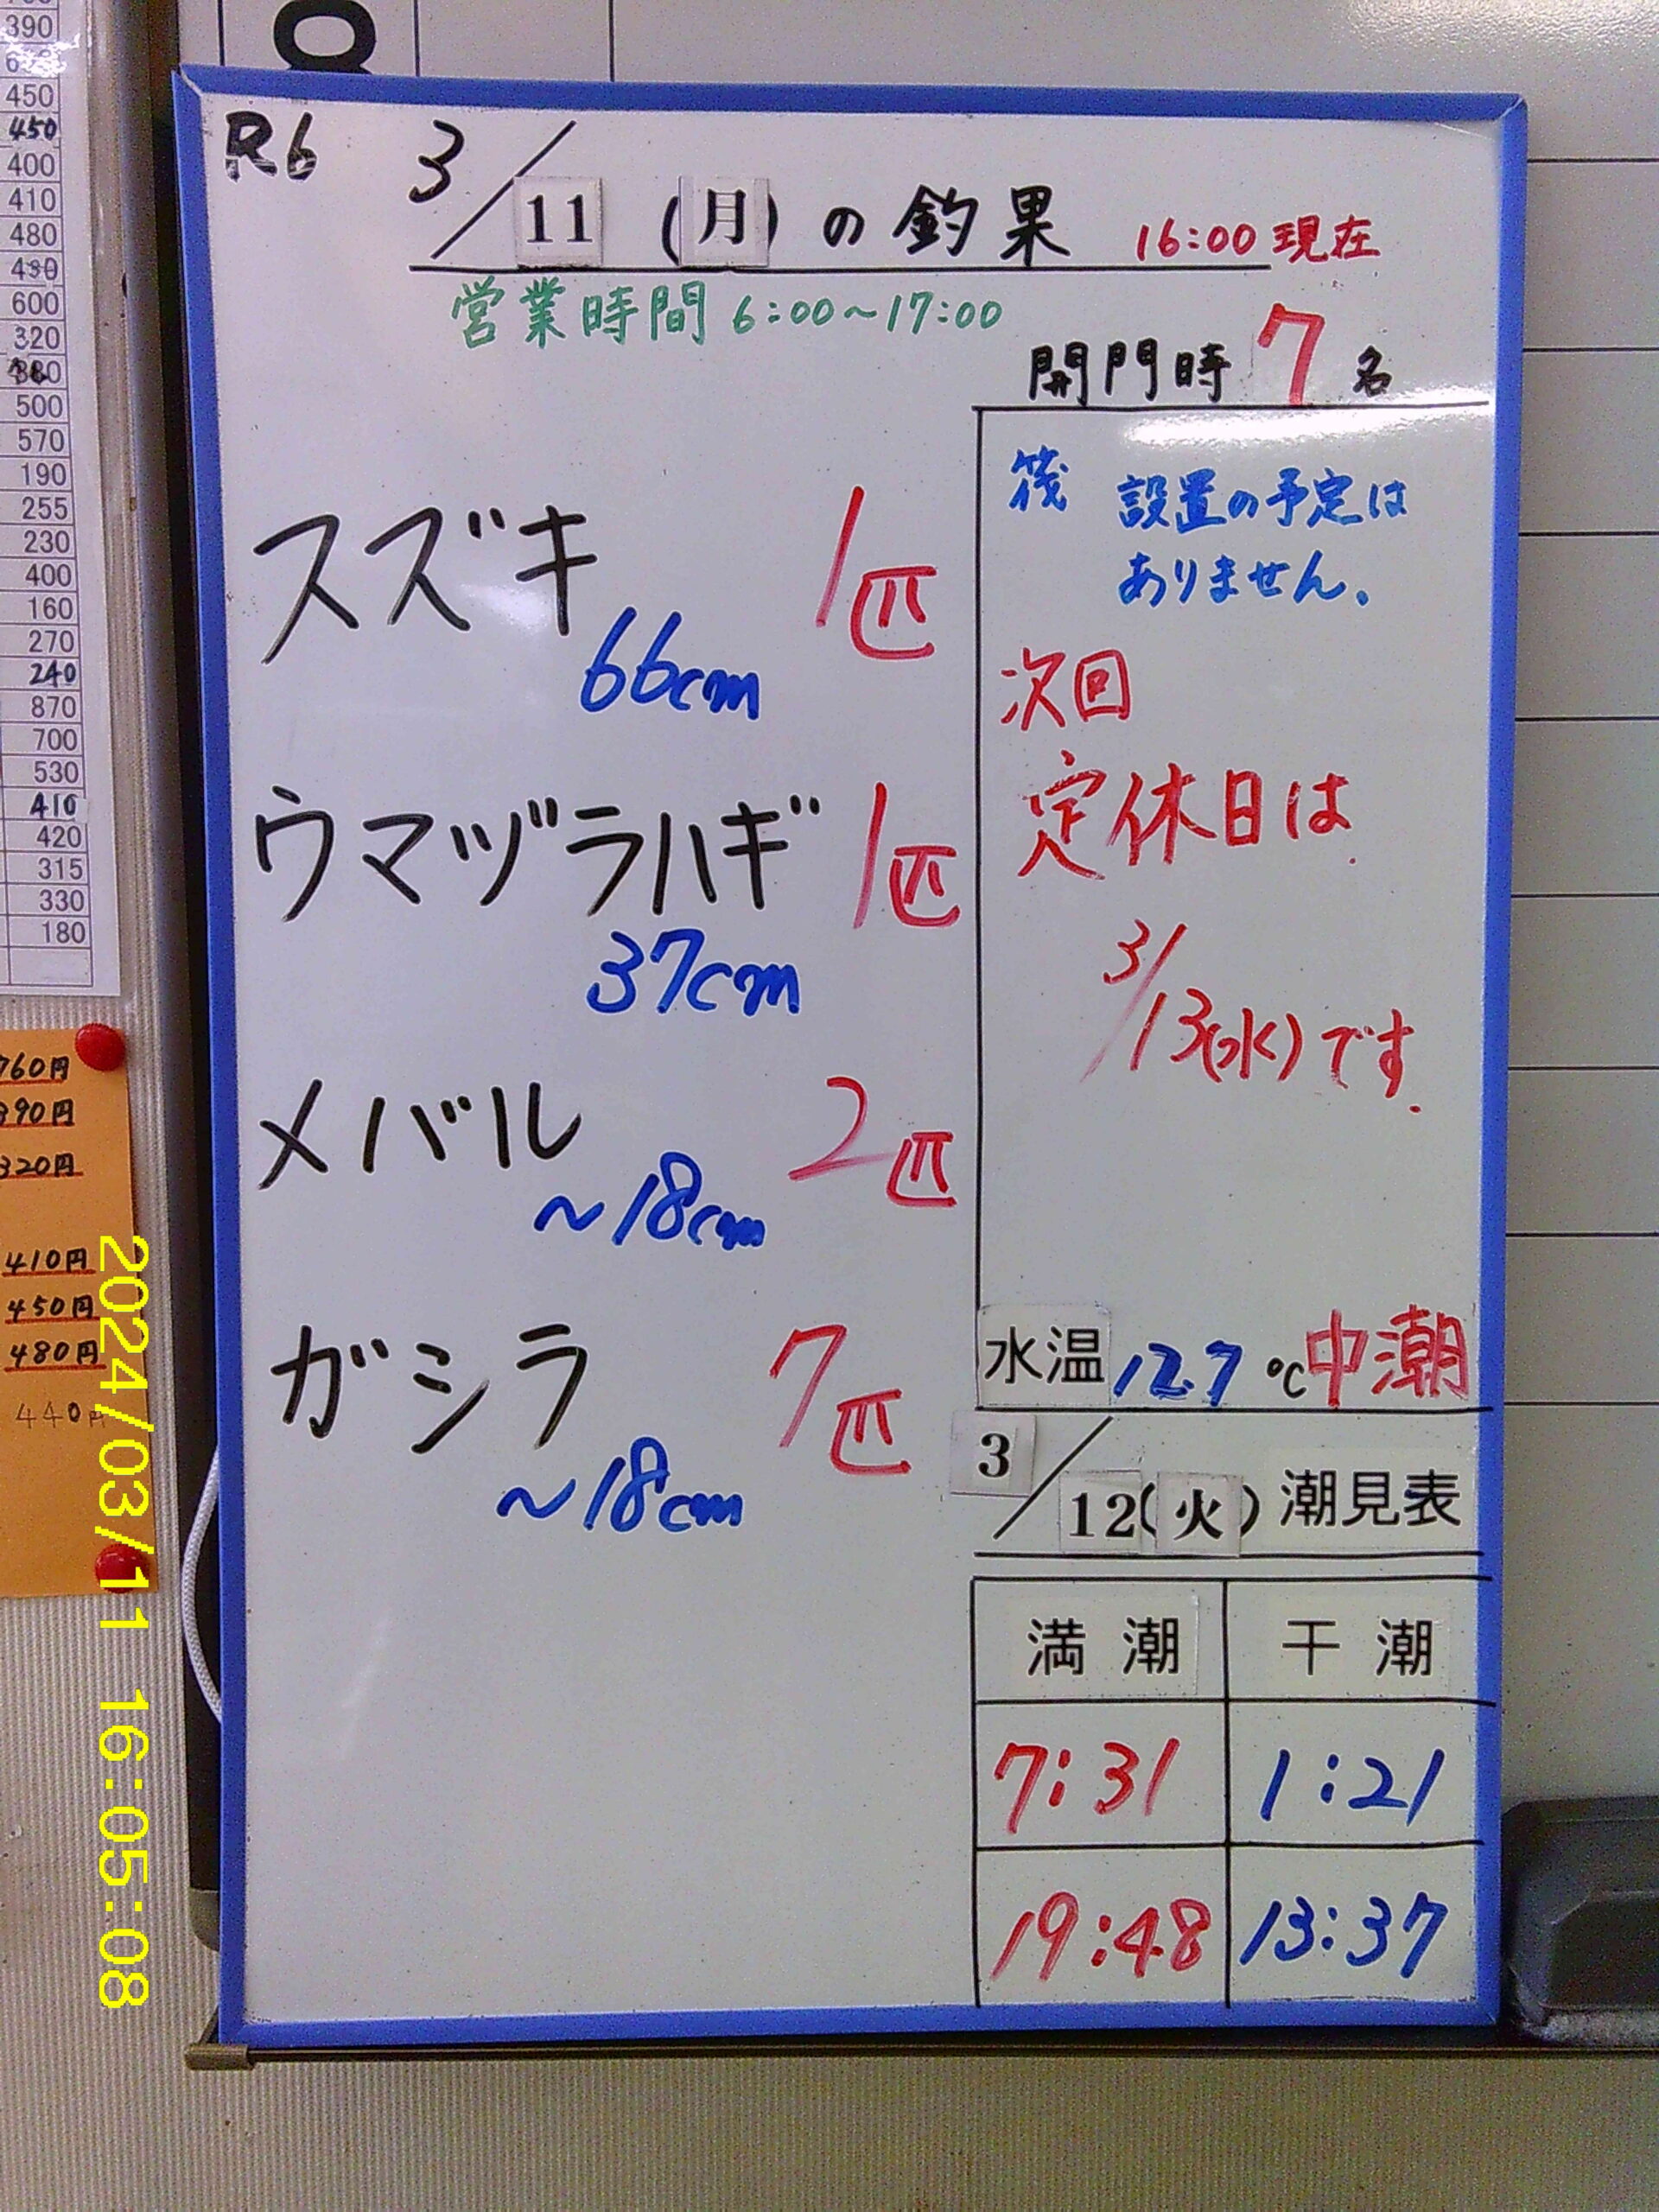 R6 3/11(月)の釣果 16:00現在
営業時間 6:00~17:00
開門時 7名
スズキ 1匹
66cm
ウマヅラハギ 1匹
37cm
メバル 2匹
~18cm
ガシラ 7匹
~18cm
筏 設置の予定は
ありません。
次回
定休日は
3/13(水)です.
水温 12.7℃ 中潮
3/12(火)潮見表
満潮 干潮
7:31 1:21
19:48 13:37
390
450
450
400
410
480
600
320
500
570
190
255
230
400
160
270
240
870
700
530
410
420
315
330
180
760円
390円
320円
410円
450円
480円
440円
2024/03/11 16:05:08